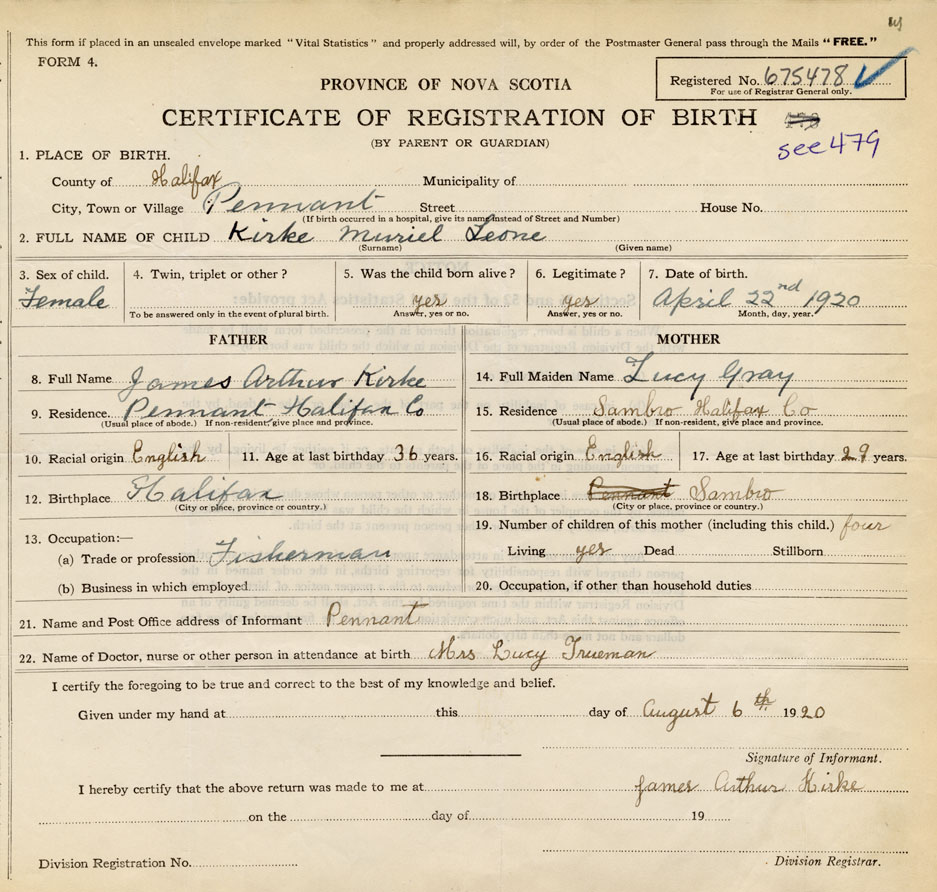 This form if placed in an unsealed envelope marked "Vital Statistics" and properly addressed will, by order of the Postmaster General pass through the Mails "FREE."
FORM 4.
Registered No. 675478
For use of Registrar General only.
PROVINCE OF NOVA SCOTIA
CERTIFICATE OF REGISTRATION OF BIRTH
see 479
(BY PARENT OR GUARDIAN)
1. PLACE OF BIRTH.
County of Halifax Municipality of
City, Town or Village Pennant Street House No.
(If birth occurred in a hospital, give its name instead of Street and Number)
2. FULL NAME OF CHILD Kirke Muriel Leone
(Surname) (Given name)
3. Sex of child. 4. Twin, triplet or other? 5. Was the child born alive? 6. Legitimate? 7. Date of birth.
Female yes yes April 22nd 1920
To be answered only in the event of plural birth. Answer, yes or no. Answer, yes or no. Month, day, year.
FATHER MOTHER
8. Full Name James Arthur Kirke 14. Full Maiden Name Lucy Gray
9. Residence. Pennant Halifax Co 15. Residence Sambro Halifax Co
(Usual place of abode.) If non-resident, give place and province. (Usual place of abode.) If non-resident, give place and province.
10. Racial origin English 11. Age at last birthday 36 years. 16. Racial origin English 17. Age at last birthday 29 years.
12. Birthplace Halifax 18. Birthplace Pennant Sambro
(City or place, province or country.) (City or place, province or country.)
13. Occupation:— 19. Number of children of this mother (including this child.) four
(a) Trade or profession Fisherman Living yes Dead Stillborn
(b) Business in which employed. 20. Occupation, if other than household duties
21. Name and Post Office address of Informant Pennant
22. Name of Doctor, nurse or other person in attendance at birth Mrs Lucy Trueman
I certify the foregoing to be true and correct to the best of my knowledge and belief.
Given under my hand at this day of August 6th 1920
Signature of Informant.
I hereby certify that the above return was made to me at James Arthur Kirke
on the day of 19
Division Registration No. Division Registrar.